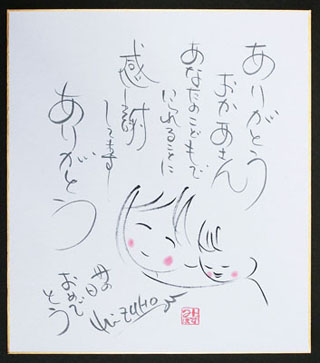 ありがとう
おかあさん
あなたのこどもで
いれることに
感謝
してます
ありがとう
母の日
おめで
とう